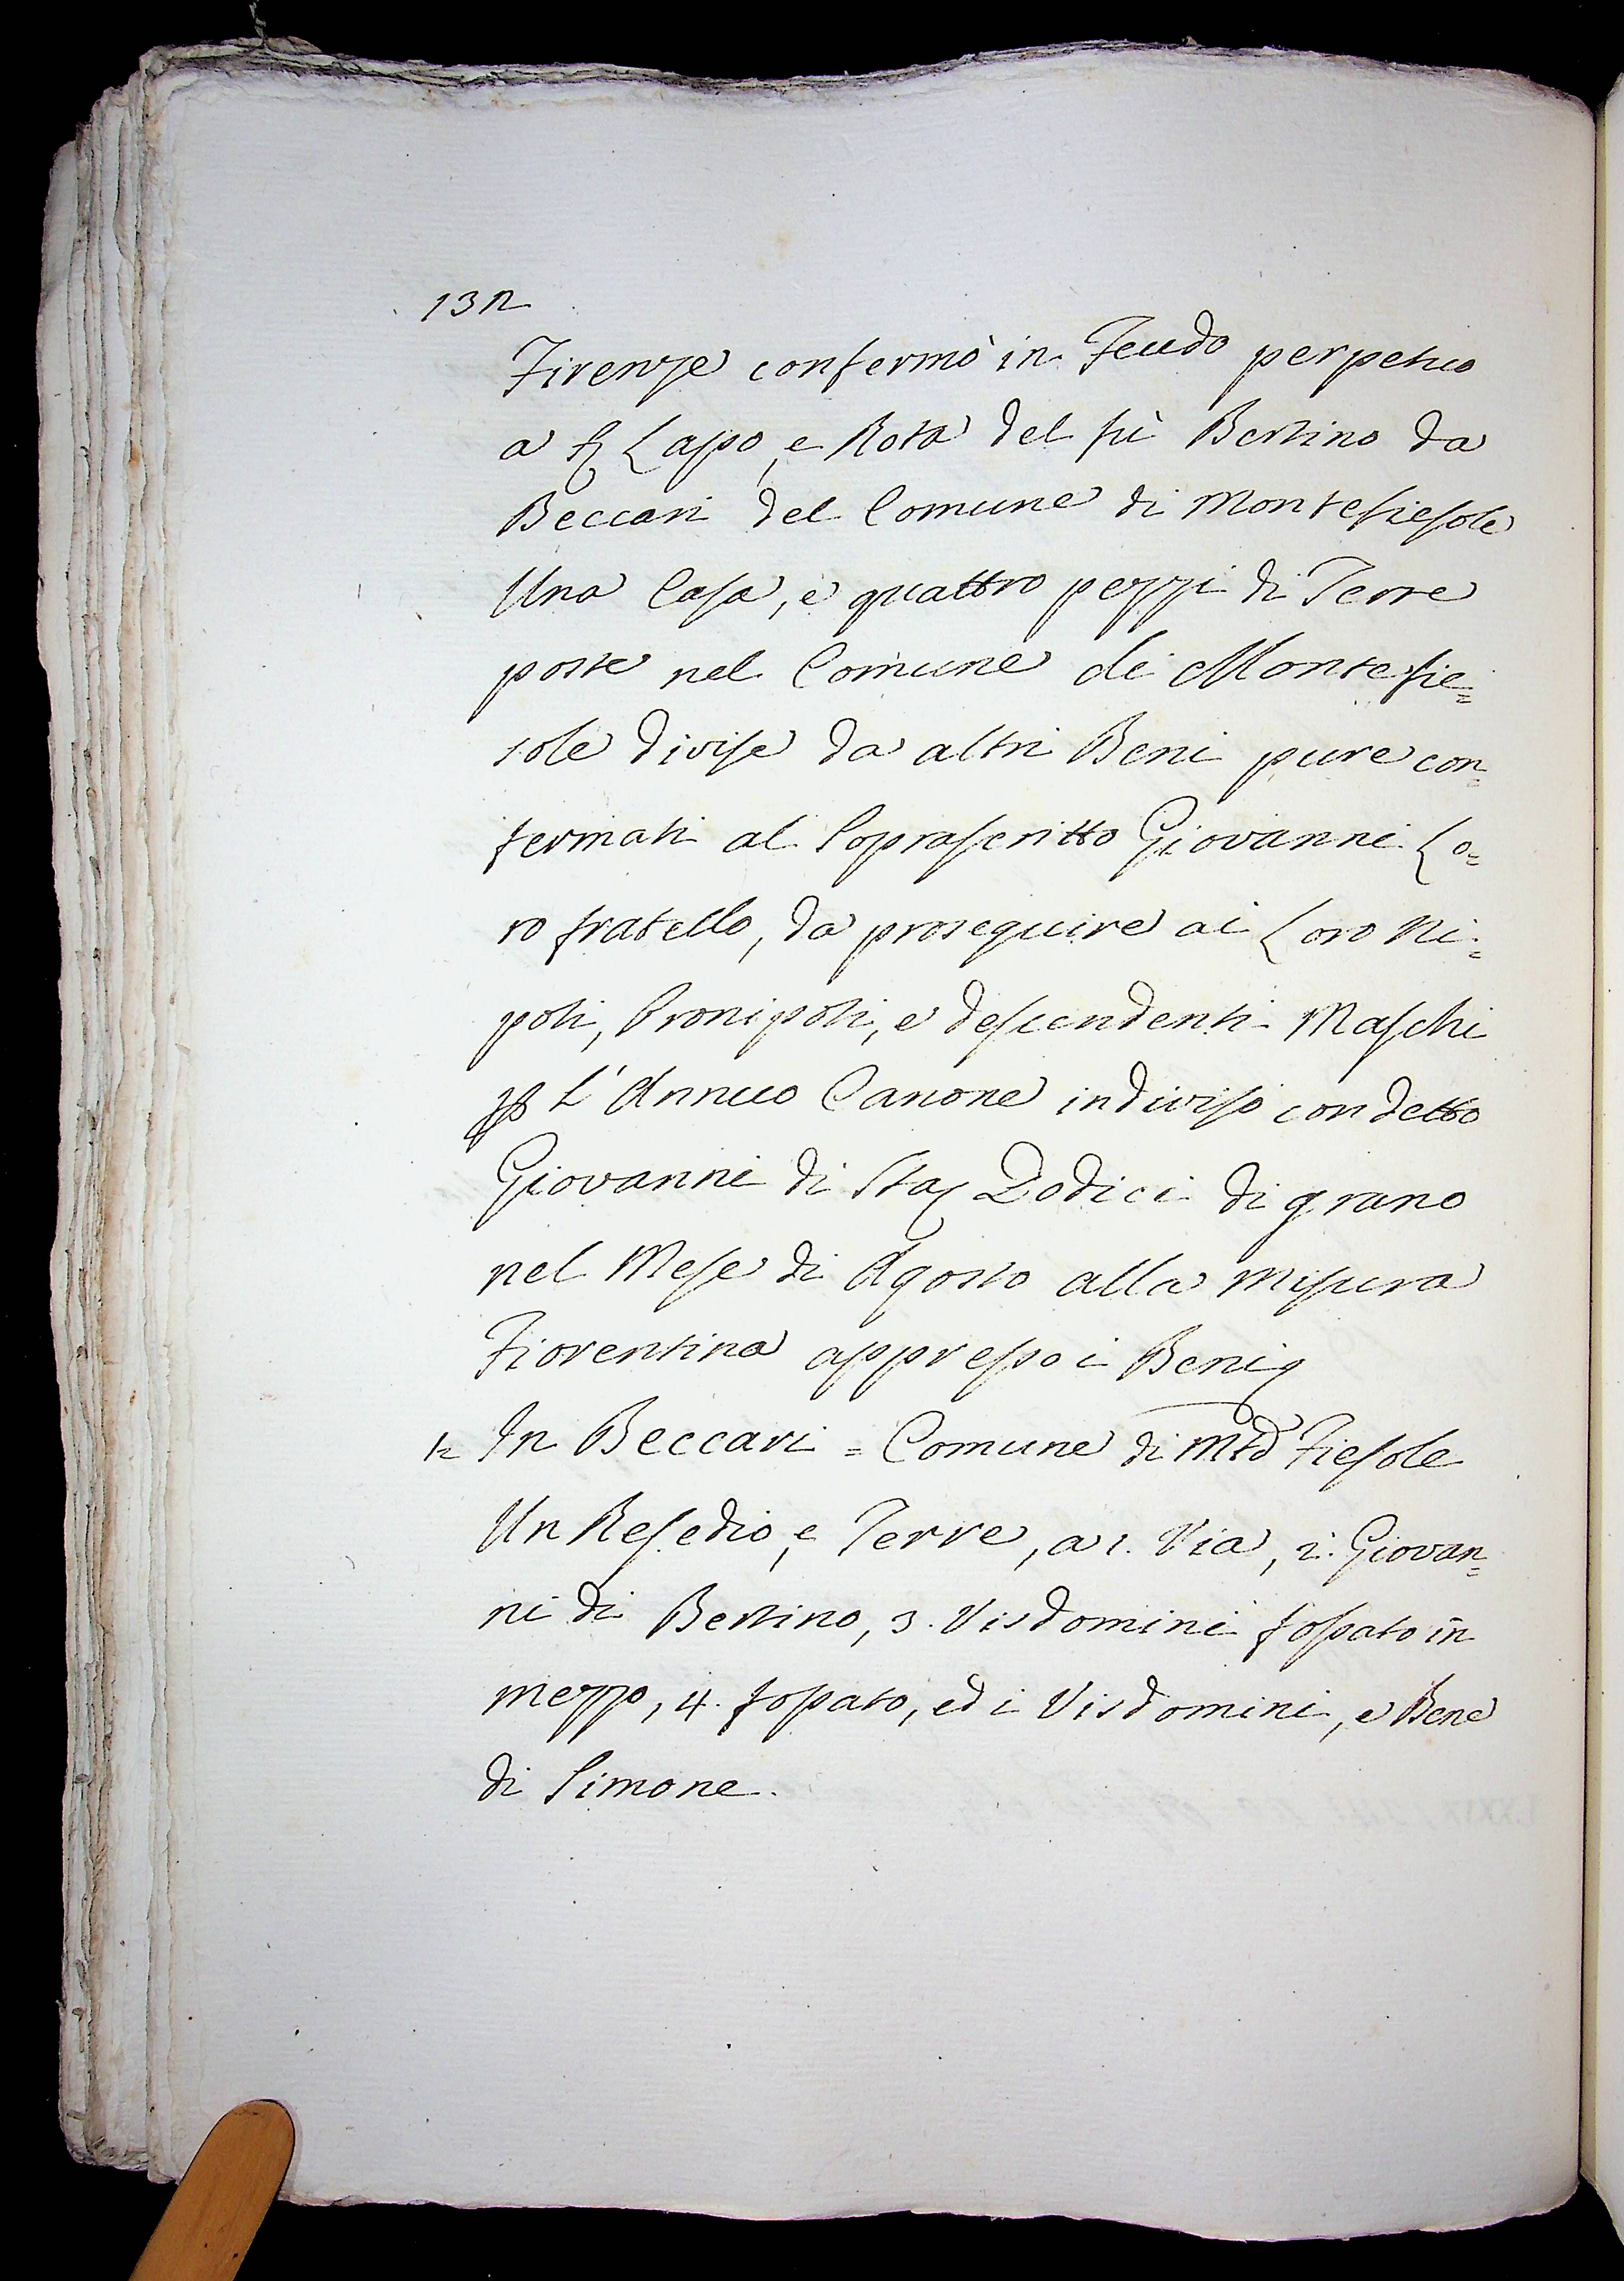 132
Firenze confermò in Feudo perpetuo
a Lapo, e Rota del fù Bertino da
Beccari del Comune di Montefiesole
Una Casa, e quattro pezzi di Terre
poste nel Comune di Montefie=
sole divise da altri Beni pure con=
fermati al Soprascritto Giovanni Lo=
ro fratello, da proseguire ai Loro Ni=
poti, Pronipoti, e descendenti Maschi
L'Annuo Canone indiviso con detto
Giovanni di Sta Dodici di grano
nel Mese di Agosto alla misura
Fiorentina appresso i Beni
In Beccari = Comune di Fiesole
Un Resedio, e Terre, a 1. Via, 2. Giovan=
ni di Bertino, 3. Visdomini fossato in
mezzo, 4. fossato, ed i Visdomini, e Bene
di Simone.